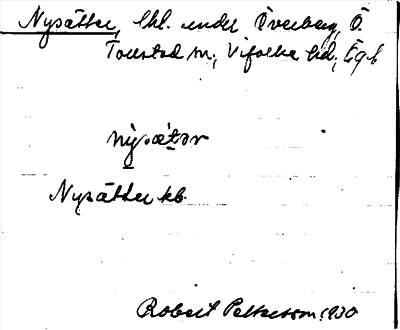 Nysätter, lhl. under Överberg, Ö.
Tollstad sn, Vifolka hd, Ög.l.
nỳsæ̀tər
Nysätter kb.
Robert Pettersson 1930